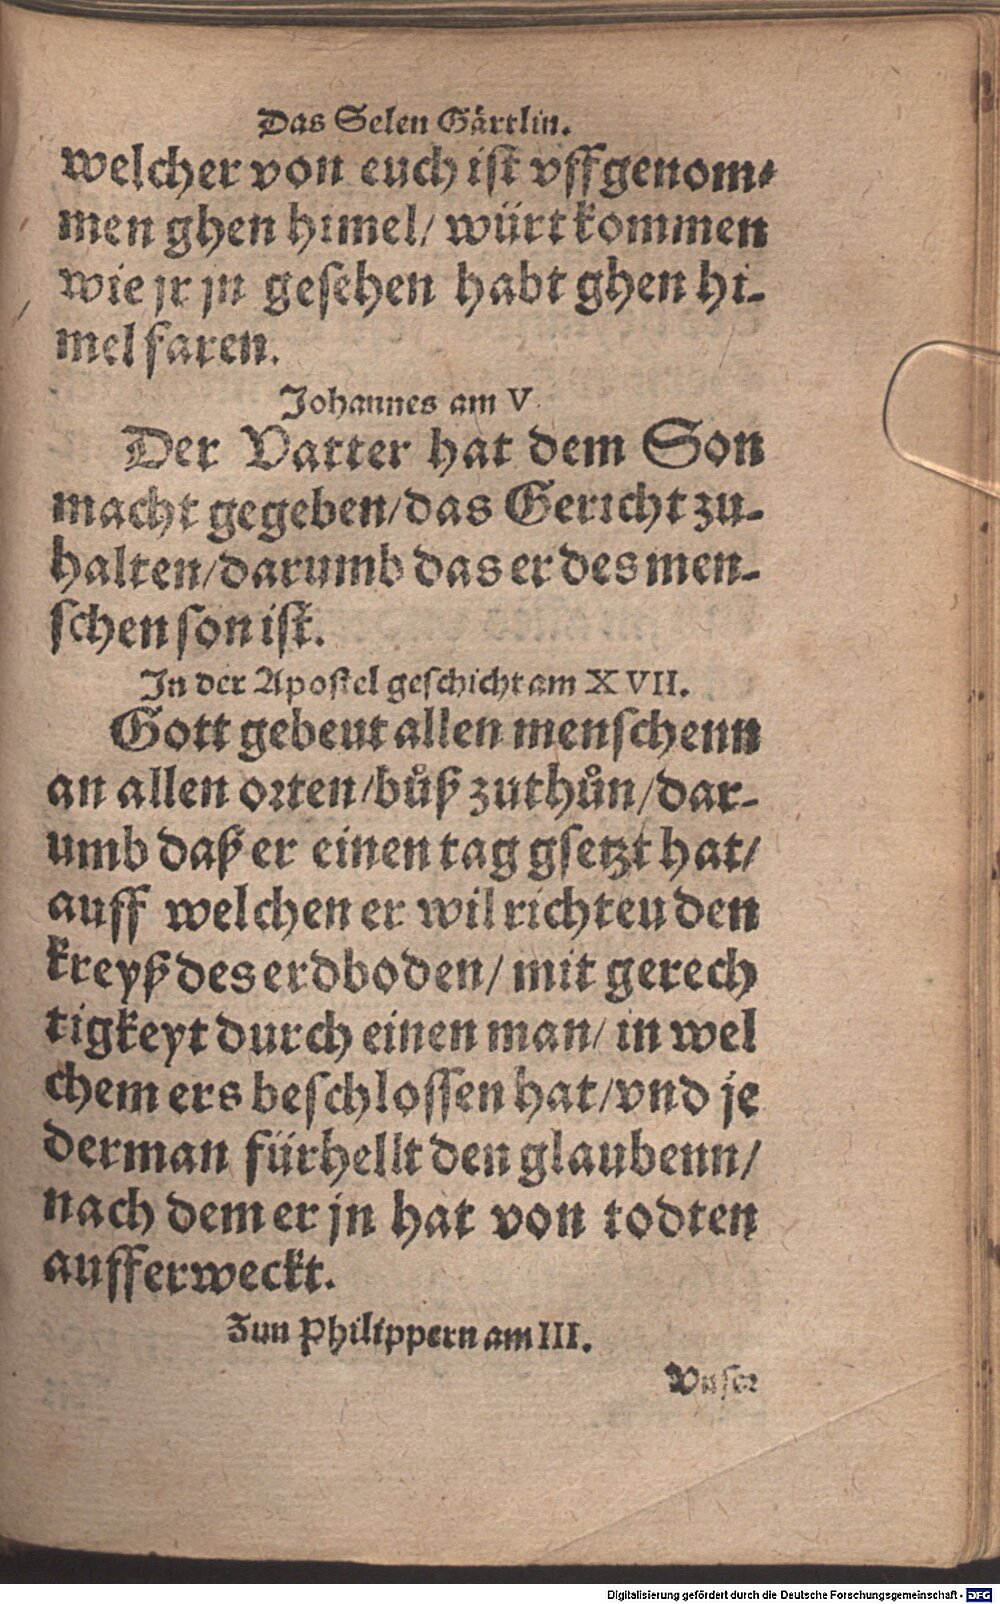 Das Selen Gärtlin.
welcher von euch ist vffgenom-
men ghen himel/ würt kommen
wie jr jn gesehen habt ghen hi-
mel faren.
Johannes am V
Der Vatter hat dem Son
macht gegeben/das Gericht zu-
halten/darumb das er des men-
schen son ist.
In der Apostel geschicht am XVII.
Gott gebeut allen menschenn
an allen orten/bůß zuthůn/dar-
umb daß er einen tag gsetzt hat/
auff welchen er wil richteu den
kreyß des erdboden/ mit gerech
tigkeyt durch einen man/ in wel
chem ers beschlossen hat/vnd je
derman fürhellt den glaubenn/
nach dem er jn hat von todten
aufferweckt.
Zun Philippern am III.
Vnser
Digitalisierung gefördert durch die Deutsche Forschungsgemeinschaft - DFG